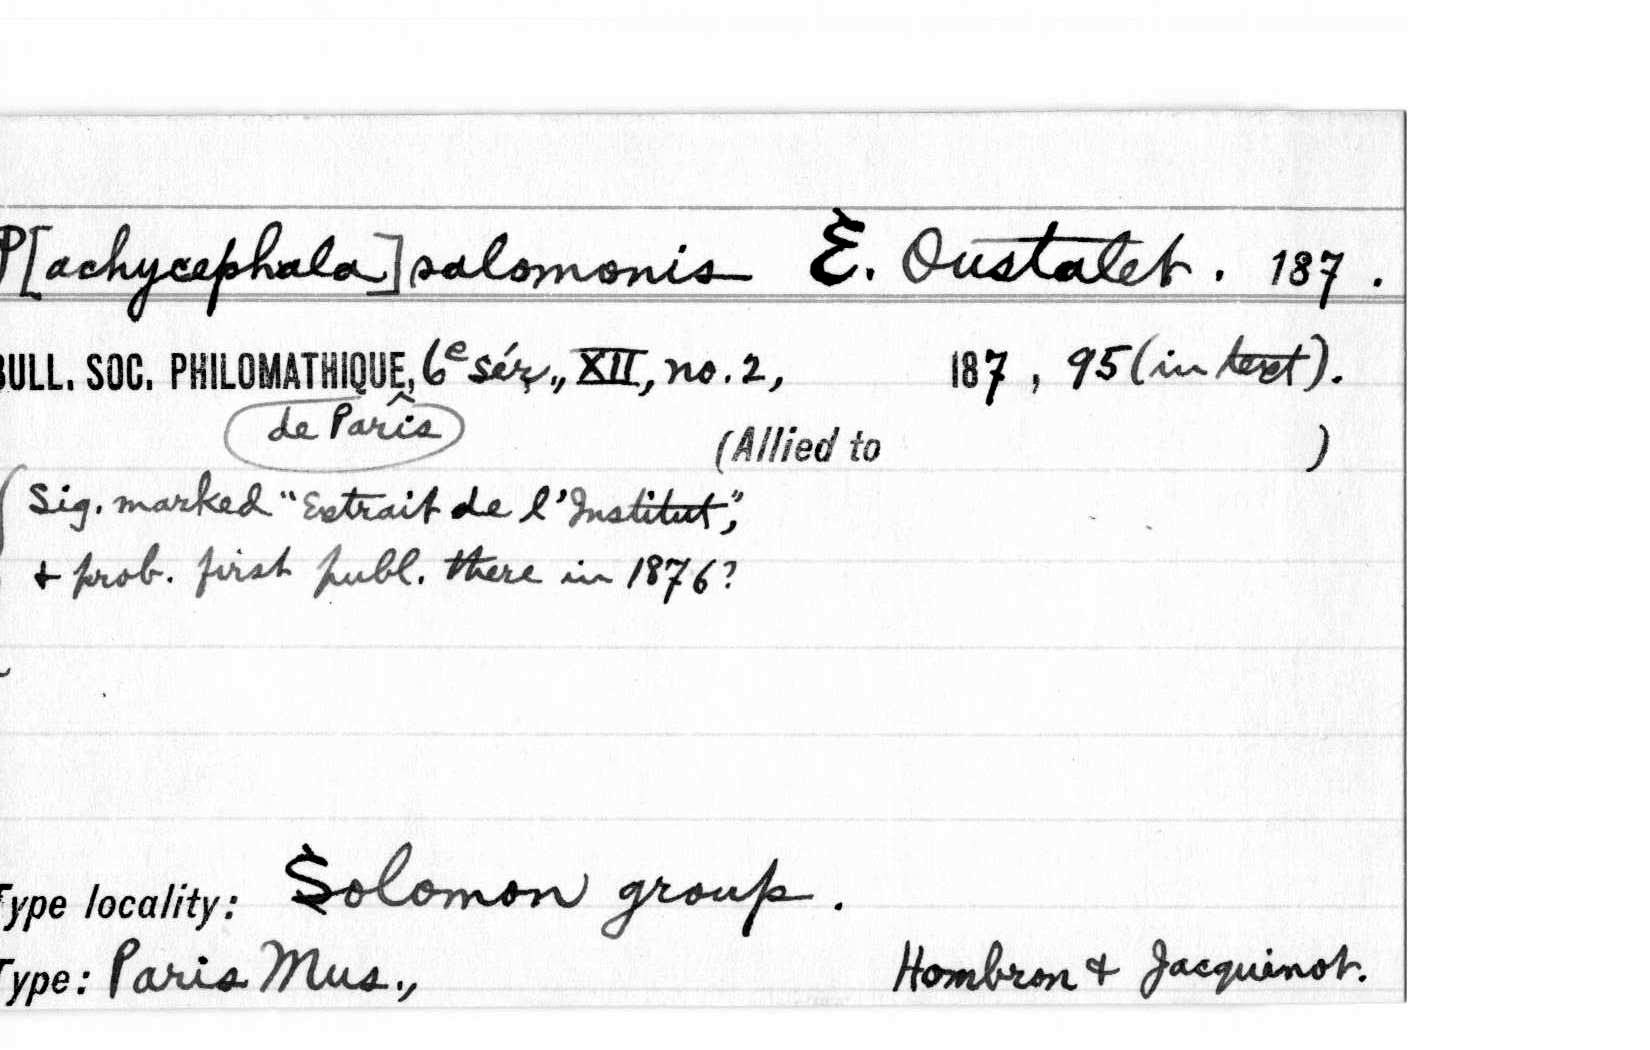 P[achycephala] salomonis E. Oustalet. 187 .
BULL. SOC. PHILOMATHIQUE, 6e sér., XII, no. 2, 187 , 95 (in text).
de Paris
(Allied to )
Sig. marked "Extrait de l'Institut",
+ prob. first publ. there in 1876?
Type locality: Solomon group.
Type: Paris Mus., Hombron + Jacquinot.